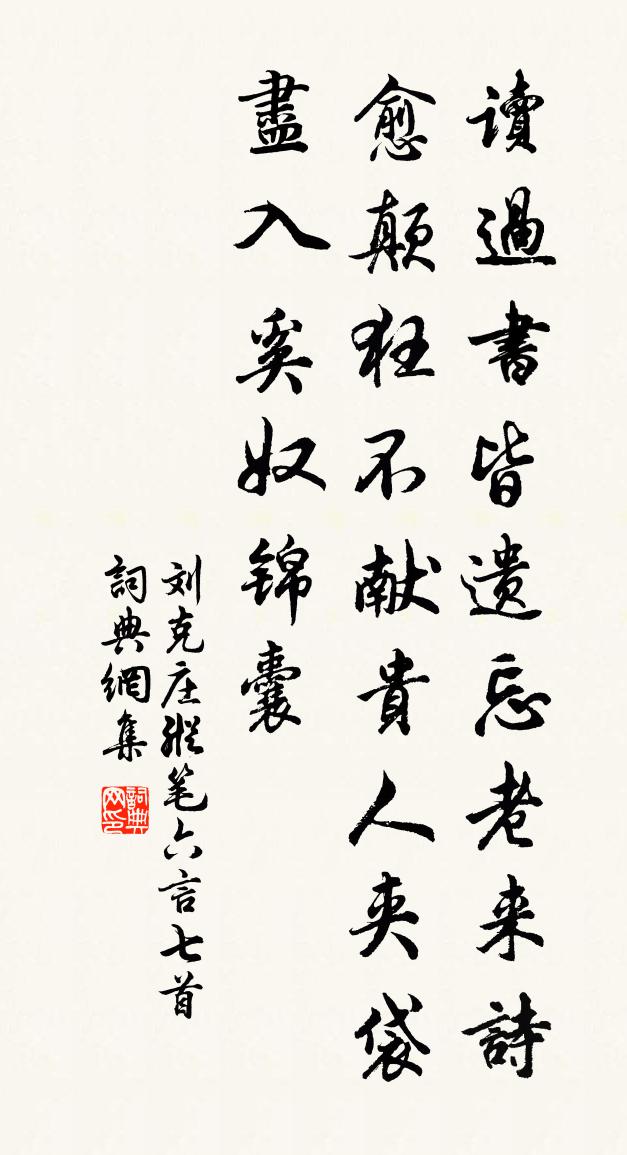 讀過書皆遗忘老来詩
愈颠狂不献貴人夹袋
盡入奚奴锦囊
刘克庄縱笔六言七首
詞典網集
詞典网印